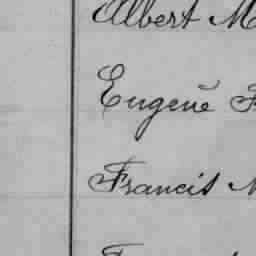 Albert M
Eugene F
Francis